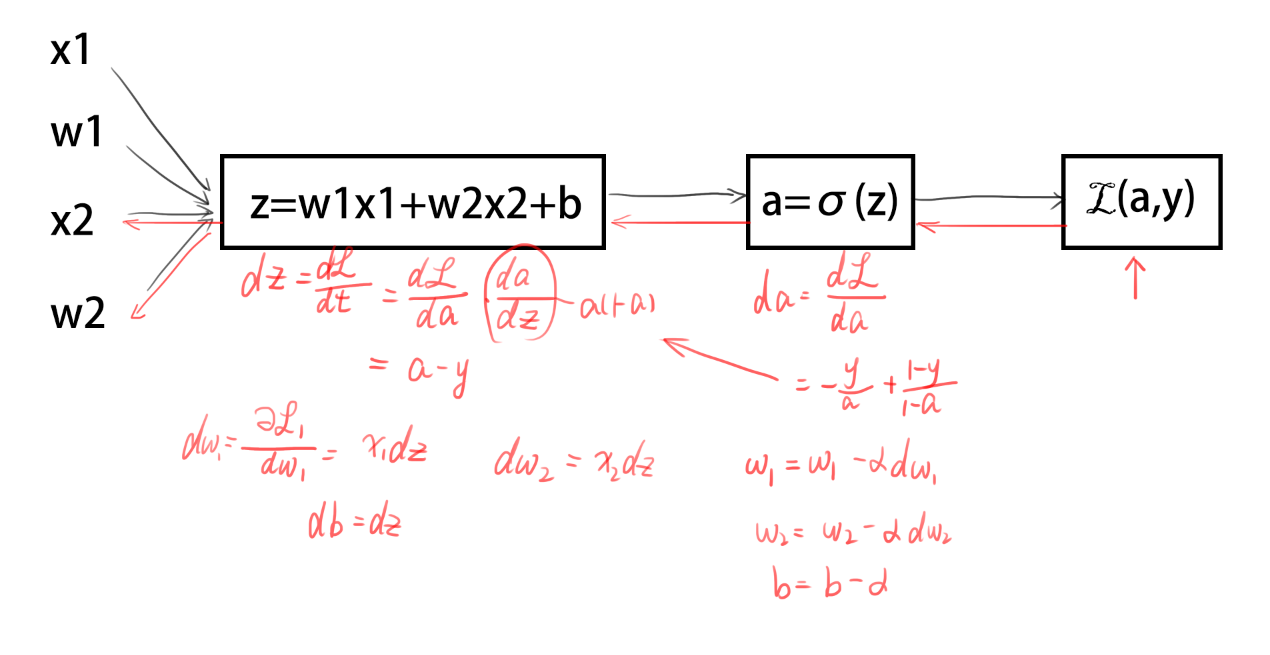 x1
w1
x2
w2
z=w1x1+w2x2+b
a=σ(z)
ℒ(a,y)
dz = dℒ/dt = dℒ/da · da/dz - a(1-a)
= a-y
da = dℒ/da
= -y/a + 1-y/1-a
dw₁ = ∂ℒ₁/dw₁ = x₁dz
dw₂ = x₂dz
db = dz
w₁ = w₁ - αdw₁
w₂ = w₂ - αdw₂
b = b - α